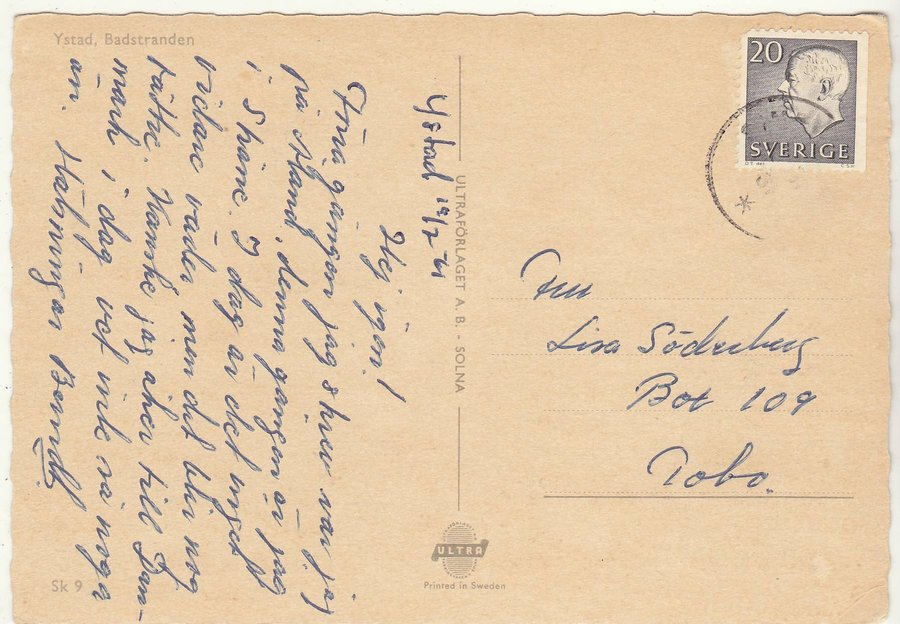 Ystad, Badstranden
Ystad 19/7 61
Hej igen!
Förra gången jag skrev var jag
på Åland, denna gången är jag
i Skåne. I dag är det inget
vidare väder men det blir nog
bättre. Kanske jag åker till Dan-
mark i dag vet inte så noga
än. Hälsningar Berndt
ULTRAFÖRLAGET A. B. - SOLNA
20
SVERIGE
Fru
Lisa Söderberg
Box 109
Tobo.
ULTRA
Printed in Sweden
Sk 9